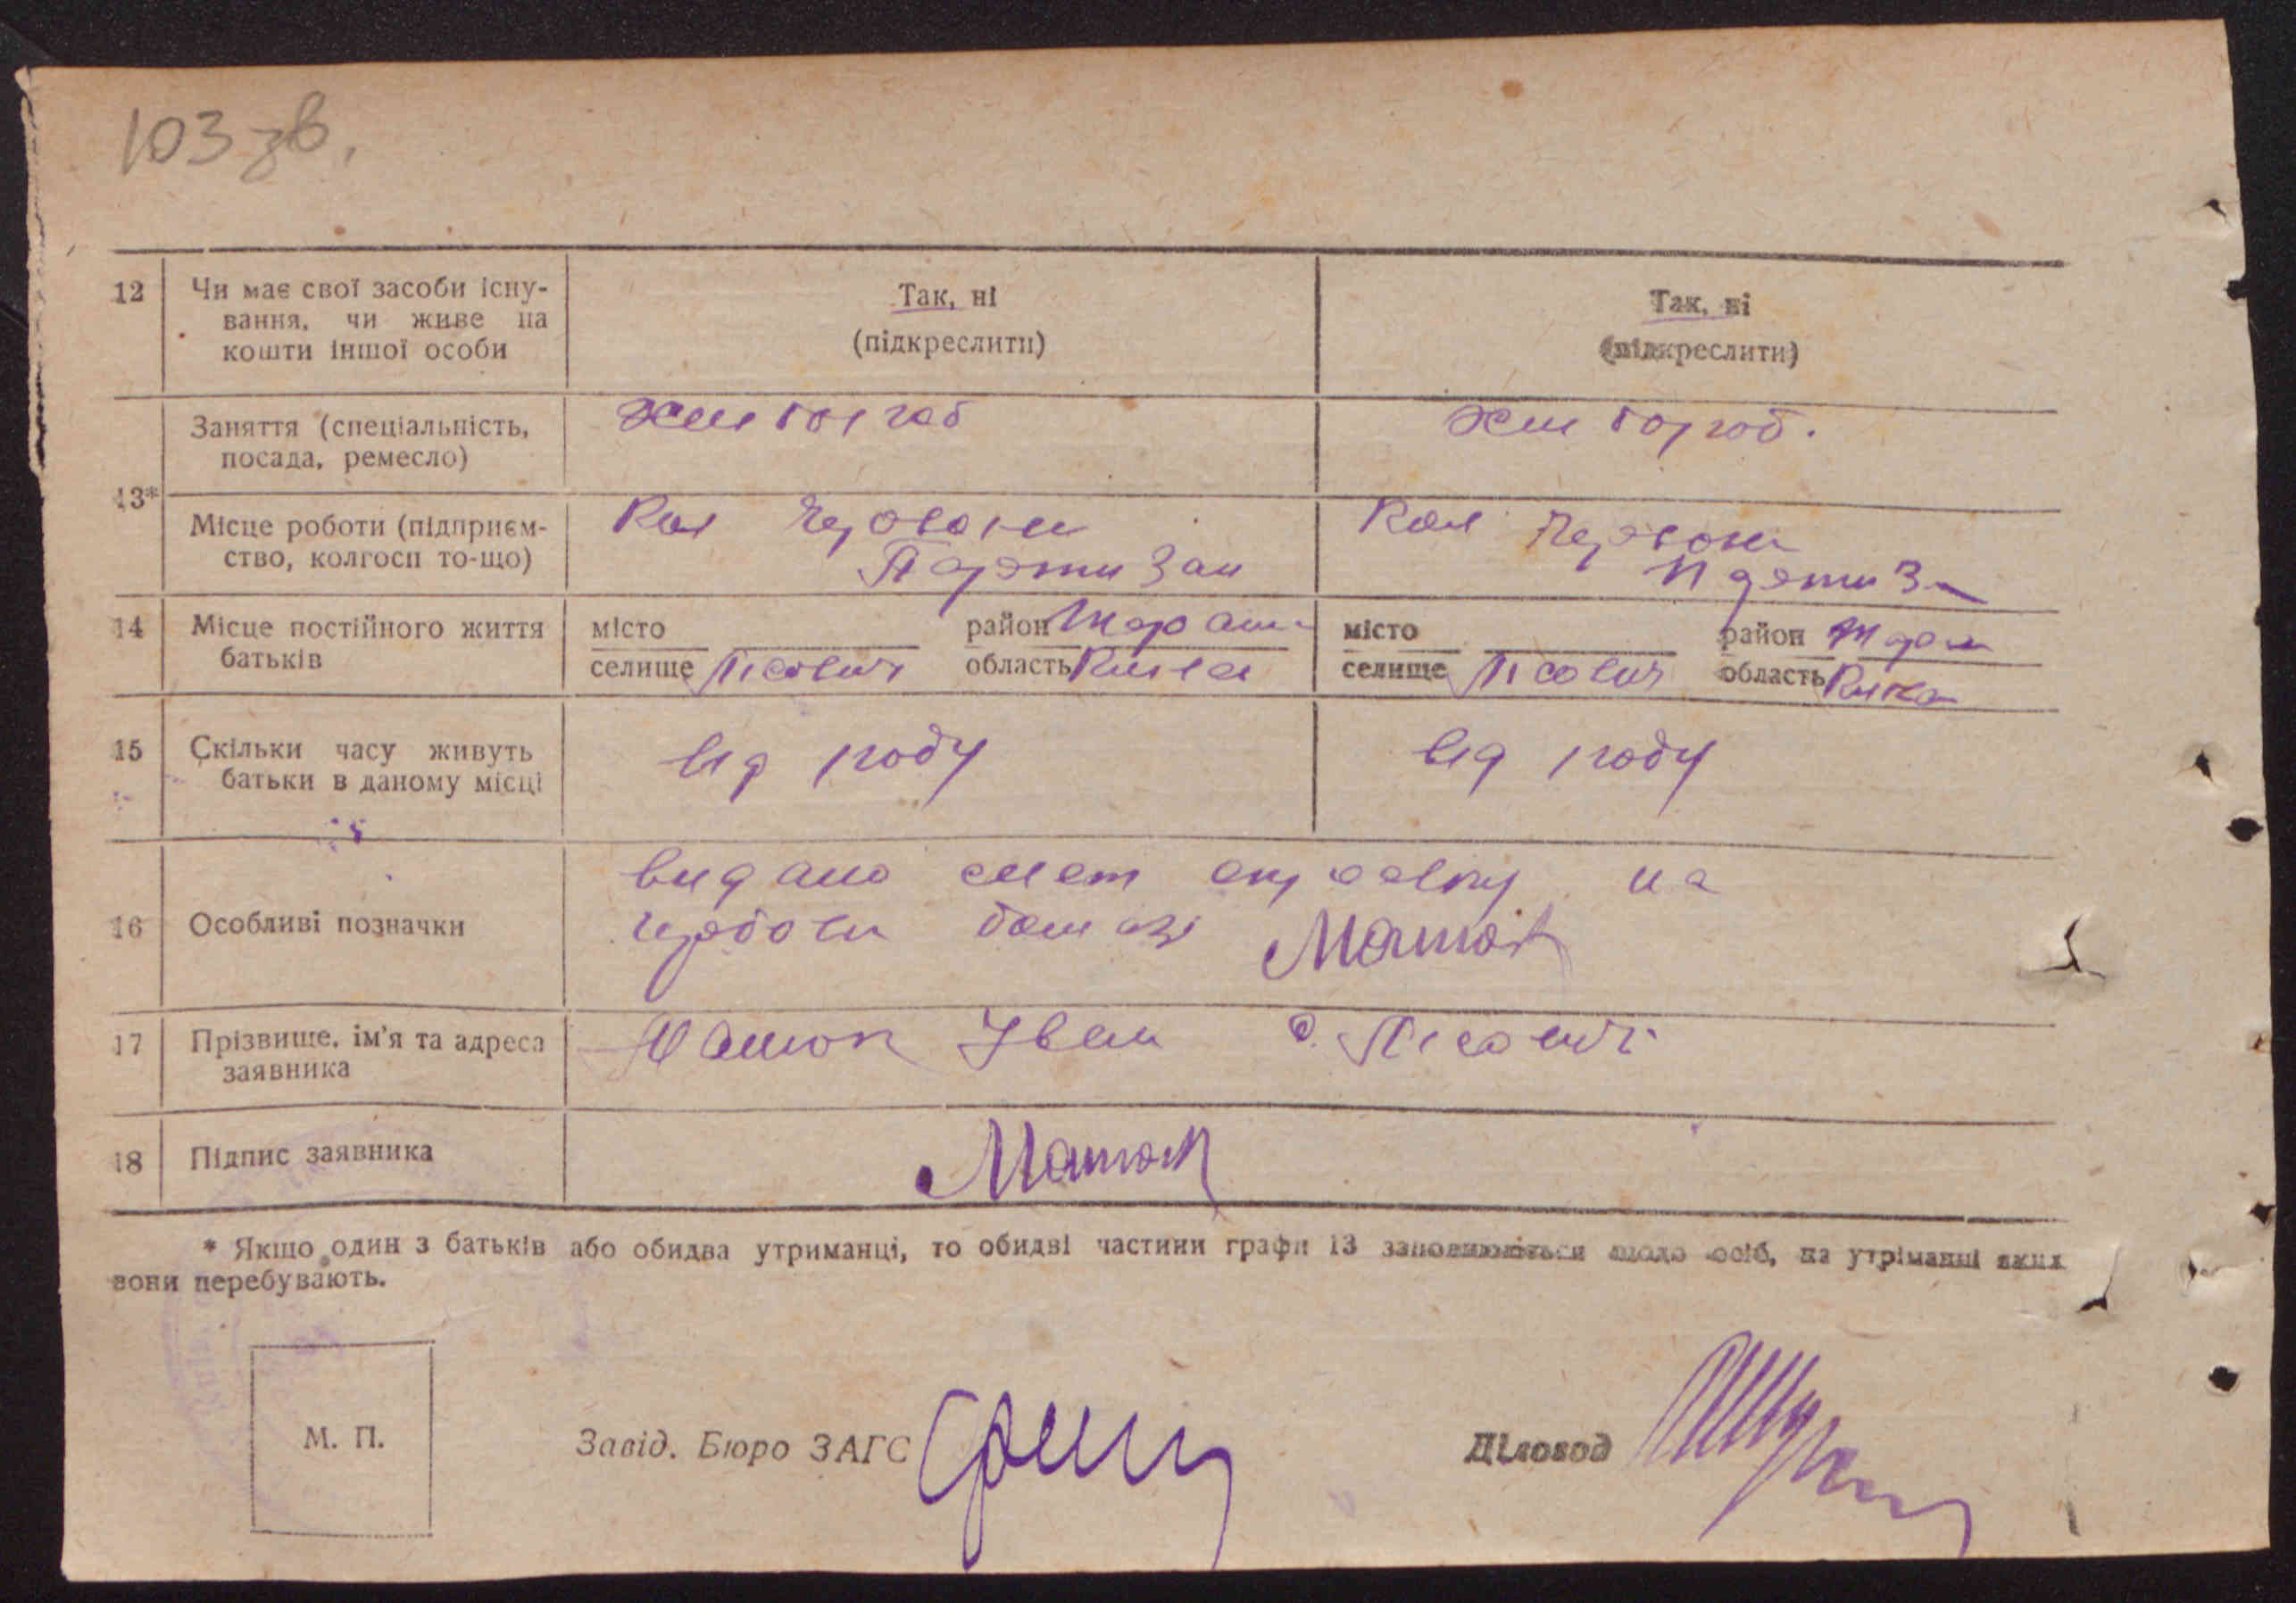 103 зв.
12 Чи має свої засоби існу-
вання, чи живе на
кошти іншої особи
Так, ні
(підкреслити)
Так, ні
(підкреслити)
13*
Заняття (спеціальність,
посада, ремесло)
Місце роботи (підприєм-
ство, колгосп то-що)
Кол Червони
Партизан
Кол Червони
14 Місце постійного життя
батьків
місто район Тараш
селище Лісович область Київ
місто район Тараш
селище Лісович область
15 Скільки часу живуть
батьки в даному місці
від роду
від роду
16 Особливі позначки
видано на
Матюк
17 Прізвище, ім'я та адреса
заявника
Матюк Іван с. Лісович
18 Підпис заявника
Матюк
* Якщо один з батьків або обидва утриманці, то обидві частини графи 13 заповнюються щодо осіб, на утріманні яких
вони перебувають.
М. П.
Завід. Бюро ЗАГС
Діловод